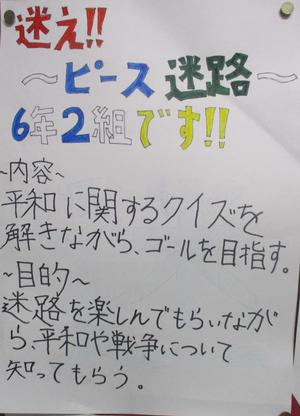 迷え!!
～ピース迷路～
6年2組です!!
~内容~
平和に関するクイズを
解きながら、ゴールを目指す。
~目的~
迷路を楽しんでもらいなが
ら、平和や戦争について
知ってもらう。